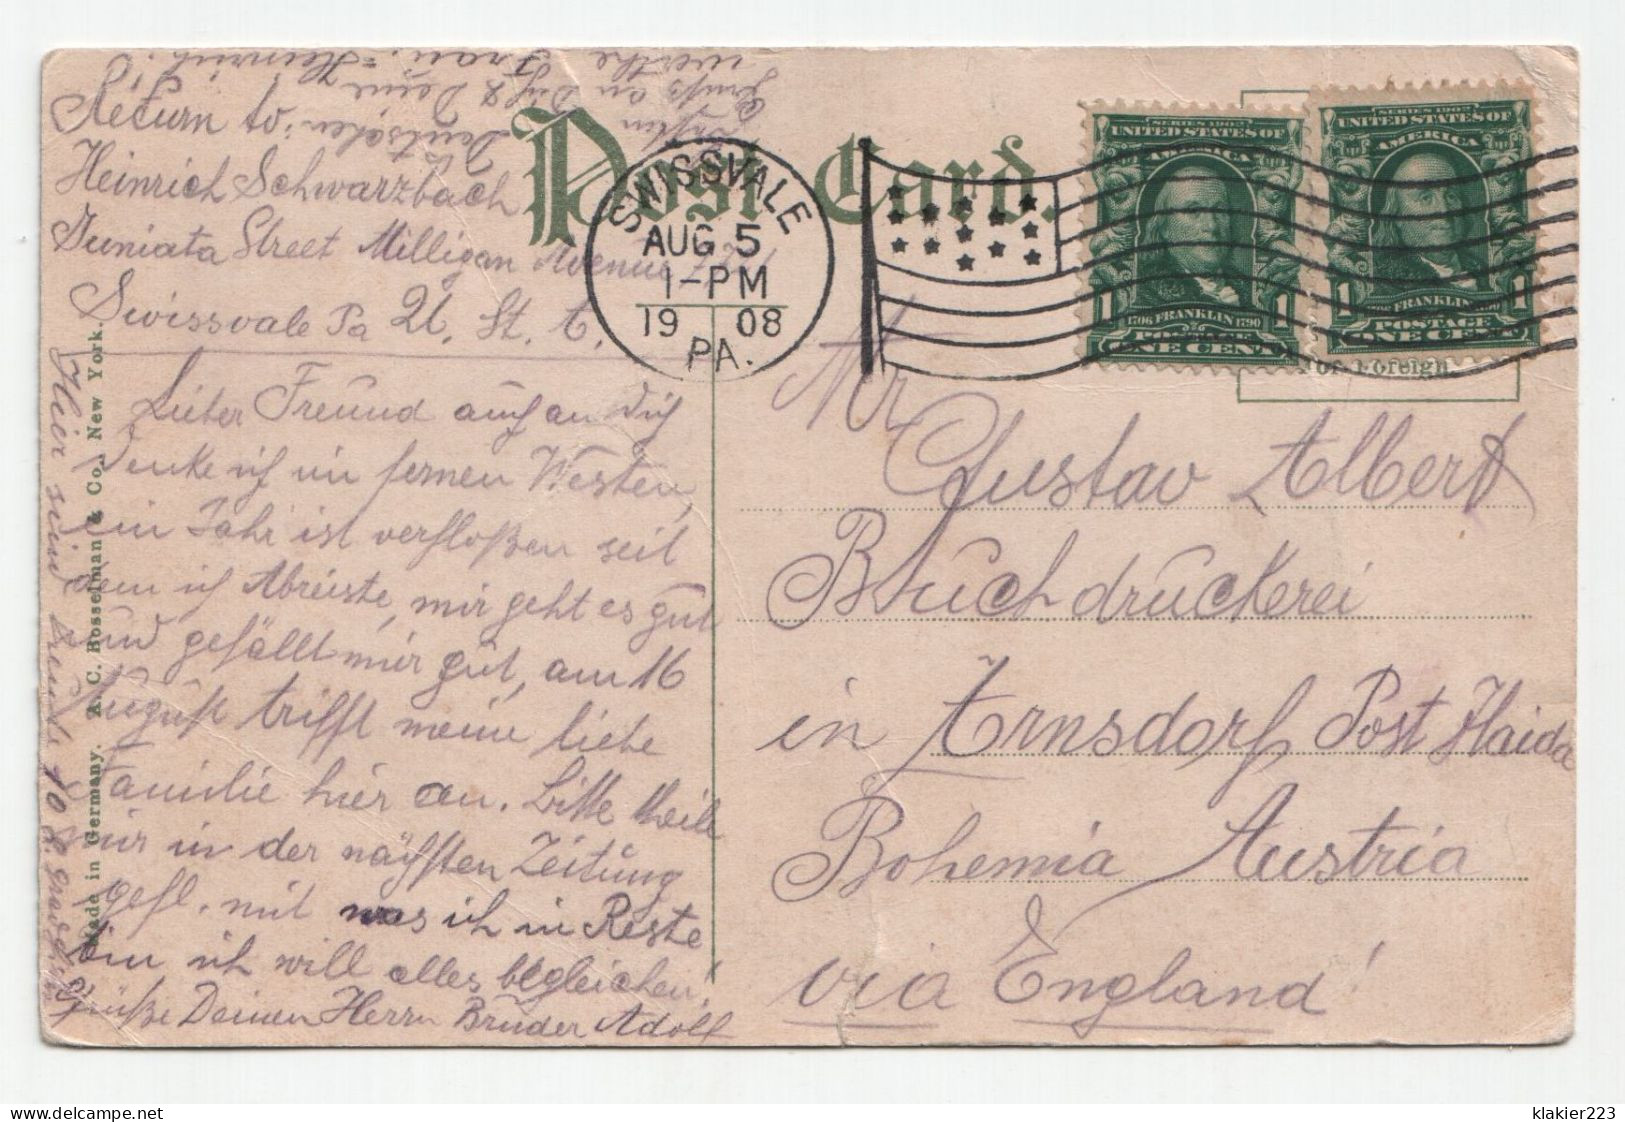 Return to:
Heinrich Schwarzbach
Juniata Street Milligan Avenue
Swissvale Pa U. St.
Lieber Freund auch an Dich
denke ich im fernen Westen,
ein Jahr ist verfloßen seit
dem ich Abreiste, mir geht es gut
und gefällt mir gut, am 16
August trifft meine liebe
Familie hier an. Bitte theile
mir in der nächsten Zeitung
gefl. mit was ich in Reste
bin ich will alles begleichen!
Grüße Deinen Herrn Bruder Adolf
Hier sind heute 90 R grad
Gruß an Dich & Deine
werthe Frau. Heinrich.
Made in Germany. A. C. Bosselman & Co., New York.
Post Card.
SWISSVALE
AUG 5
1-PM
1908
PA.
SERIES 1902
UNITED STATES OF
AMERICA
1 1
1706 FRANKLIN 1790
POSTAGE
ONE CENT
SERIES 1902
UNITED STATES OF
AMERICA
1 1
FRANKLIN
POSTAGE
ONE CENT
For Foreign
Mr
Gustav Albert
Buchdruckerei
in Arnsdorf, Post Haida
Bohemia Austria
via England!
klakier223